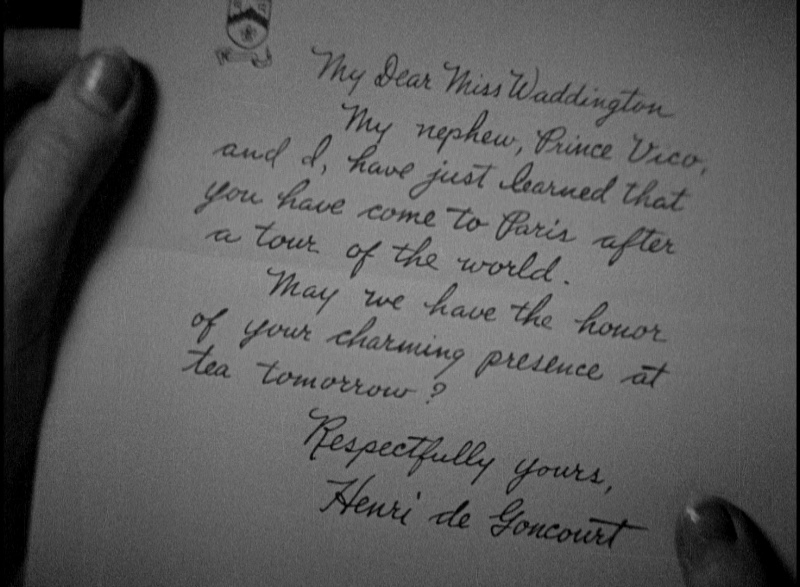 My Dear Miss Waddington
My nephew, Prince Vico,
and I, have just learned that
you have come to Paris after
a tour of the world.
May we have the honor
of your charming presence at
tea tomorrow?
Respectfully yours,
Henri de Goncourt